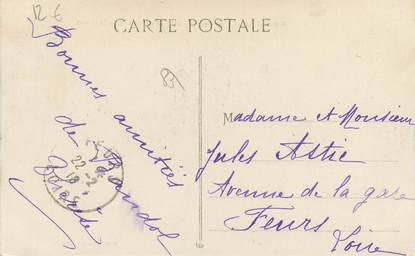 12 €
CARTE POSTALE
85
Bonnes amitiés
de Bandol
Madame et Monsieur
Jules Astic
Avenue de la gare
Feurs
Loire
22 -2
18